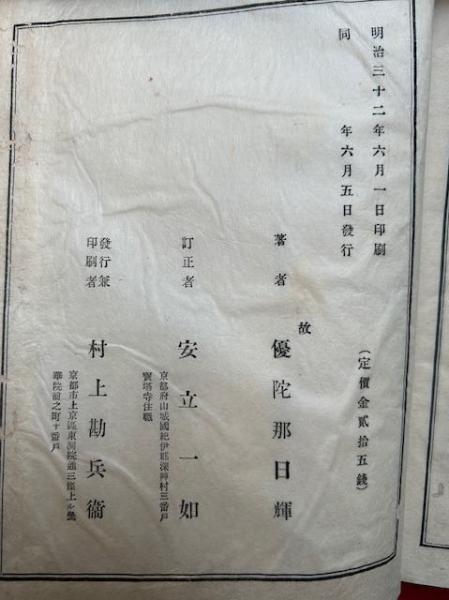 明治三十二年六月一日印刷
同　　　年六月五日發行
（定價金貳拾五錢）
著者　故　優陀那日輝
訂正者　安立一如
京都府山城國紀伊郡深艸村三番戸
寶塔寺住職
發行兼印刷者　村上勘兵衞
京都市上京區東洞院通三條上ル曇
華院前之町十番戸